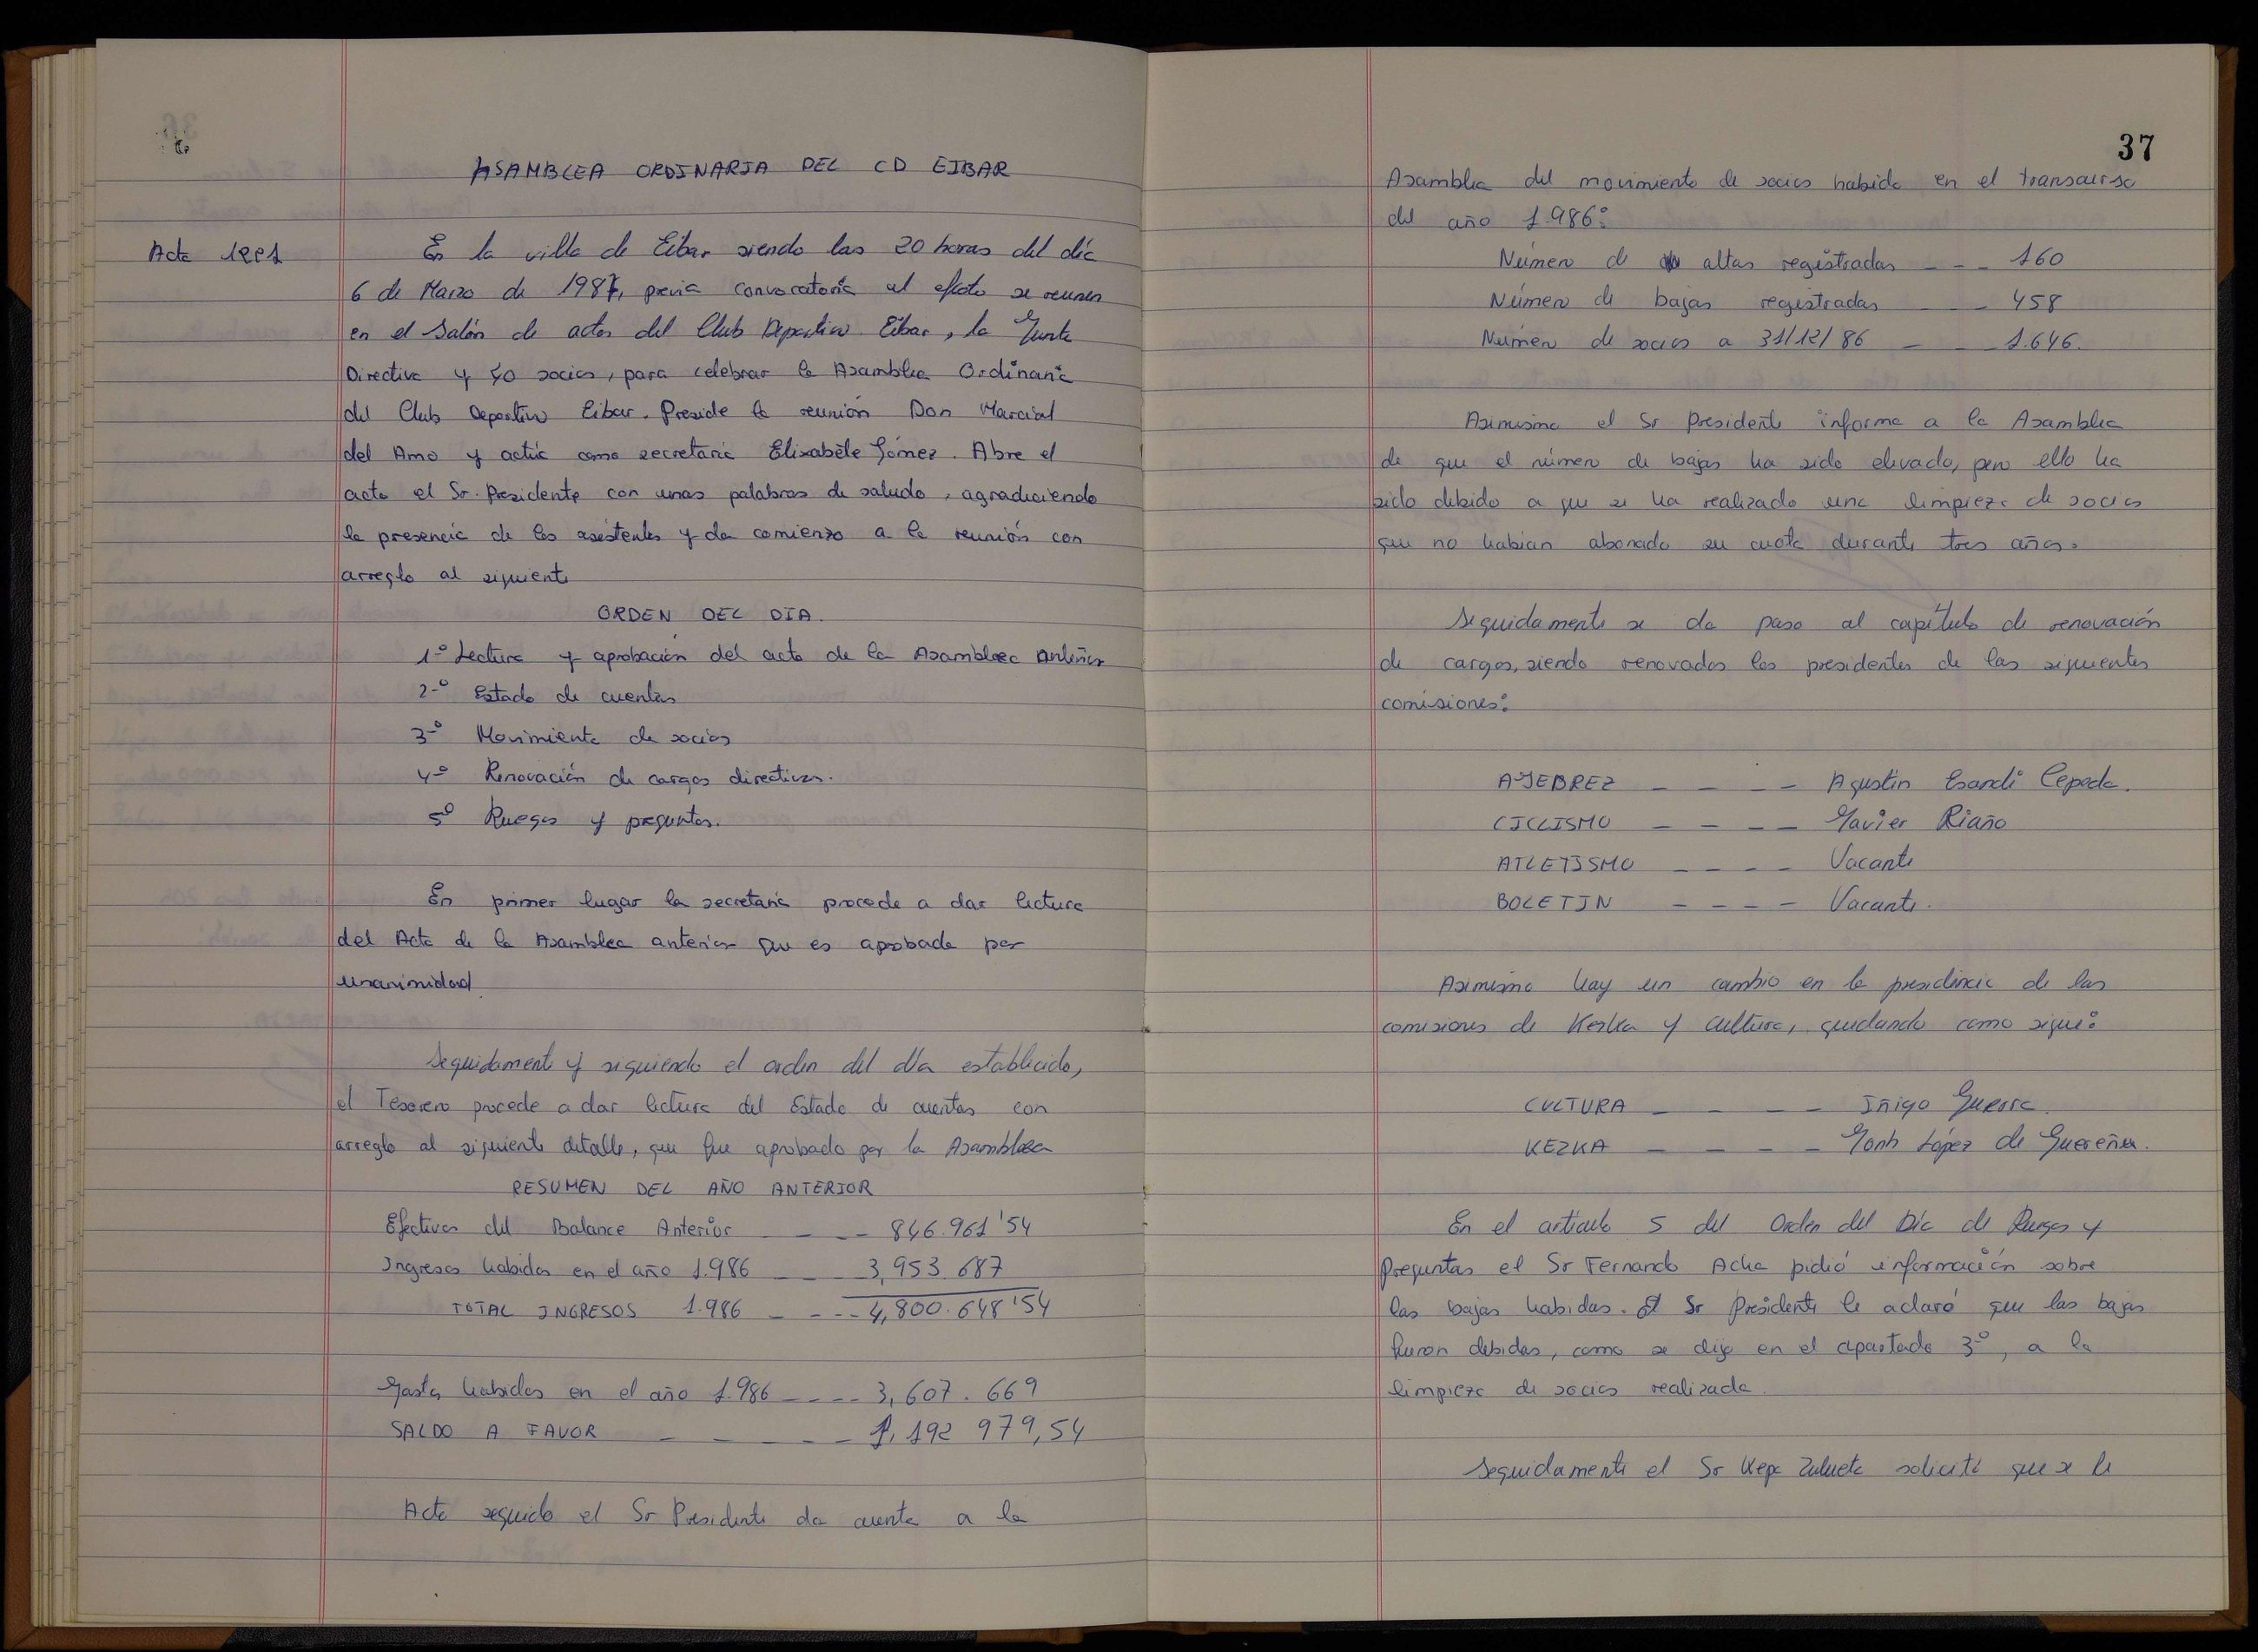 ASAMBLEA ORDINARIA DEL CD EIBAR
Acta 1221
En la villa de Eibar siendo las 20 horas del día
6 de Marzo de 1987, previa convocatoria al efecto se reunen
en el salón de actos del Club Deportivo Eibar, la Junta
Directiva y 40 socios, para celebrar la Asamblea Ordinaria
del Club Deportivo Eibar. Preside la reunión Don Marcial
del Amo y actúa como secretaria Elixabete Gómez. Abre el
acto el Sr. Presidente con unas palabras de saludo, agradeciendo
la presencia de los asistentes y da comienzo a la reunión con
arreglo al siguiente
ORDEN DEL DIA.
1-º Lectura y aprobación del acta de la Asamblea Anterior
2-º Estado de cuentas
3-º Movimiento de socios
4-º Renovación de cargos directivos.
5º Ruegos y preguntas.
En primer lugar la secretaria procede a dar lectura
del Acta de la Asamblea anterior que es aprobada por
unanimidad.
Seguidamente y siguiendo el orden del día establecido,
el Tesorero procede a dar lectura del Estado de cuentas con
arreglo al siguiente detalle, que fue aprobado por la Asamblea
RESUMEN DEL AÑO ANTERIOR
Efectivos del Balance Anterior - - - 846.961'54
Ingresos habidos en el año 1.986 - - 3,953.687
TOTAL INGRESOS 1.986 - - - - 4,800.648'54
Gastos habidos en el año 1.986 - - - - 3,607.669
SALDO A FAVOR - - - - - 1,192 979,54
Acto seguido el Sr Presidente da cuenta a la
37
Asamblea del movimiento de socios habido en el transcurso
del año 1.986:
Número de altas registradas - - - 160
Número de bajas registradas - - 458
Número de socios a 31/12/86 - - 1.646.
Asimismo el Sr Presidente informa a la Asamblea
de que el número de bajas ha sido elevado, pero ello ha
sido debido a que se ha realizado una limpieza de socios
que no habian abonado su cuota durante tres años.
Seguidamente se da paso al capítulo de renovación
de cargos, siendo renovados los presidentes de las siguientes
comisiones:
AJEDREZ - - - - Agustin Esandi Cepeda.
CICLISMO - - - - Javier Riaño
ATLETISMO - - - - Vacante
BOLETIN - - - - Vacante.
Asimismo hay un cambio en la presidencia de las
comisiones de Kezka y cultura, quedando como sigue:
CULTURA - - - - Iñigo Guerra.
KEZKA - - - - López de Guereñu.
En el artículo 5 del Orden del Día de Ruegos y
Preguntas el Sr Fernando Acha pidió información sobre
las bajas habidas. El Sr Presidente le aclaró que las bajas
fueron debidas, como se dijo en el apartado 3-º, a la
limpieza de socios realizada.
Seguidamente el Sr Kepa Zulueta solicita que se le